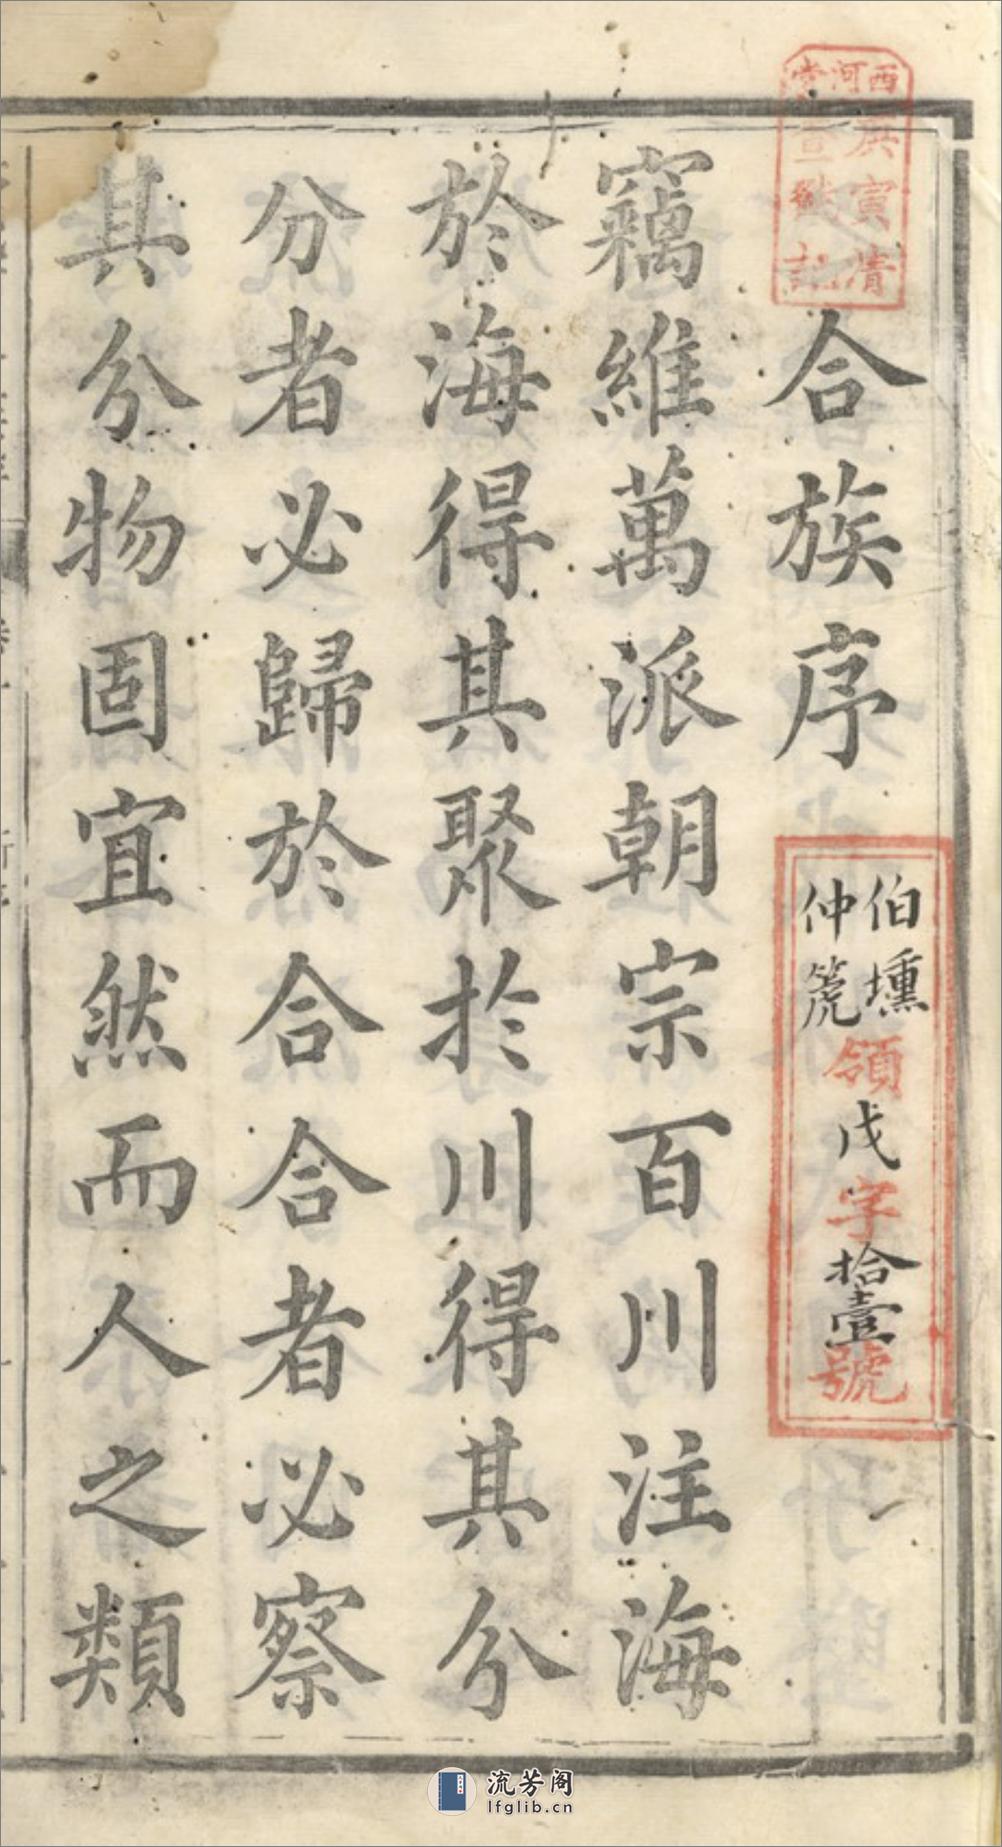 西河堂
庚寅清
查點記
合族序
伯壎
仲篪
領戊字拾壹號
竊維萬派朝宗百川注海
於海得其聚於川得其分
分者必歸於合合者必察
其分物固宜然而人之類
流芳阁
lfglib.cn